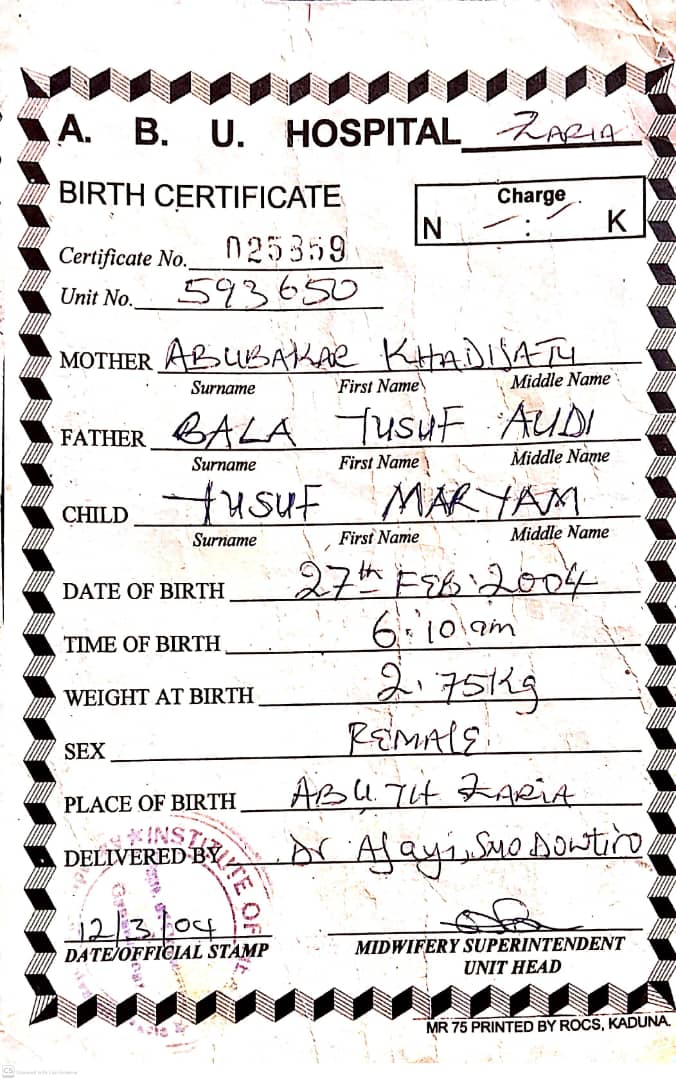 A. B. U. HOSPITAL ZARIA
BIRTH CERTIFICATE
Charge
N - : - K
Certificate No. 025359
Unit No. 593650
MOTHER ABUBAKAR KHADIJATU
Surname First Name Middle Name
FATHER BALA YUSUF AUDI
Surname First Name Middle Name
CHILD YUSUF MARYAM
Surname First Name Middle Name
DATE OF BIRTH 27th FEB. 2004
TIME OF BIRTH 6:10 am
WEIGHT AT BIRTH 2.75kg
SEX FEMALE
PLACE OF BIRTH ABUTH ZARIA
DELIVERED BY Dr Ajayi,
INSTITUTE OF
12/3/04
DATE/OFFICIAL STAMP
MIDWIFERY SUPERINTENDENT
UNIT HEAD
MR 75 PRINTED BY ROCS, KADUNA.
CS